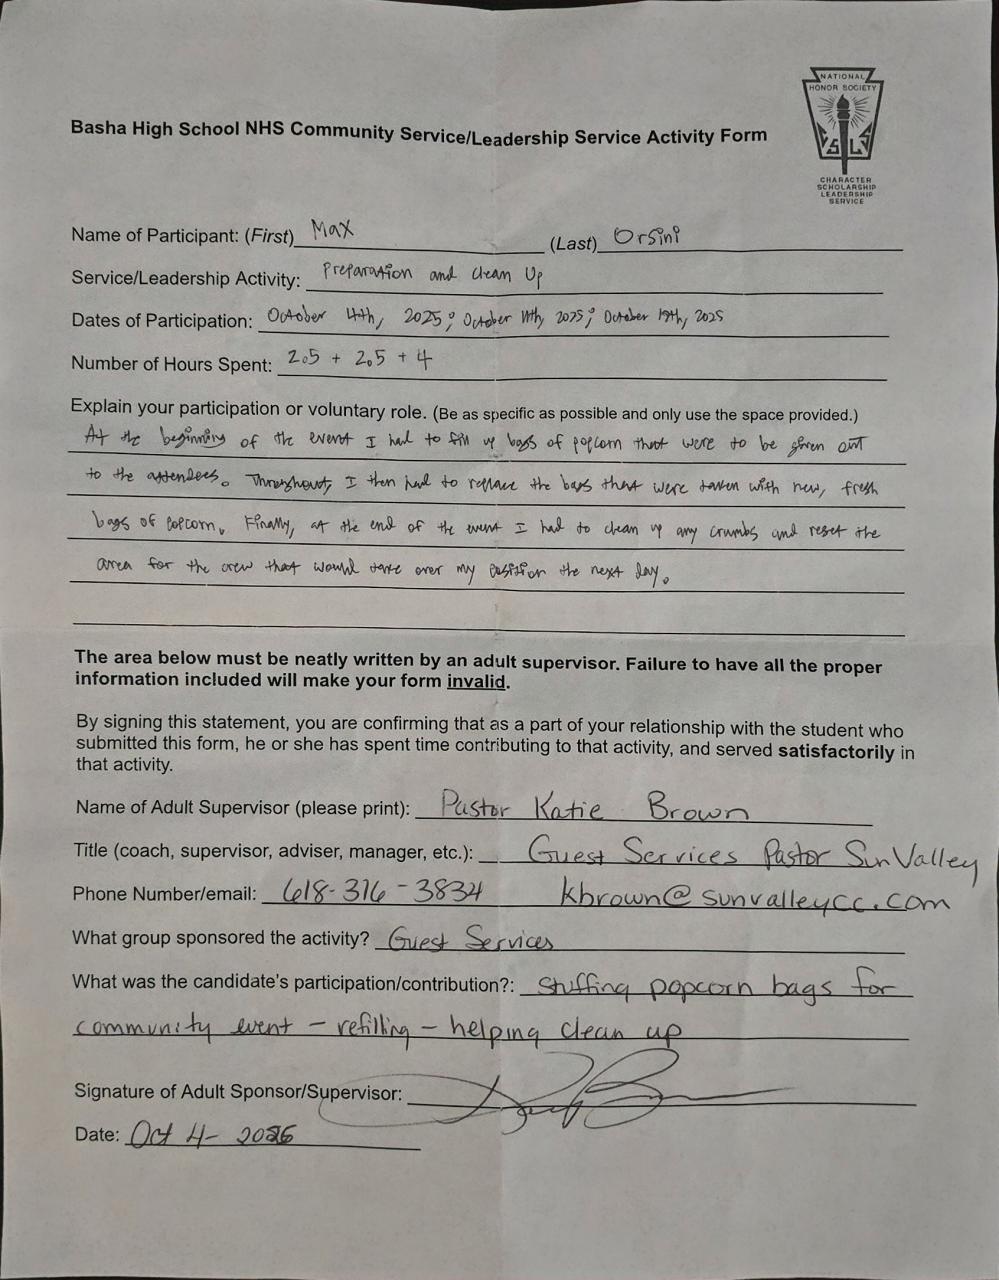 NATIONAL
HONOR SOCIETY
Basha High School NHS Community Service/Leadership Service Activity Form
CHARACTER
SCHOLARSHIP
LEADERSHIP
SERVICE
Name of Participant: (First) Max (Last) Orsini
Service/Leadership Activity: Preparation and Clean Up
Dates of Participation: October 4th, 2025; October 11th, 2025; October 19th, 2025
Number of Hours Spent: 2.5 + 2.5 + 4
Explain your participation or voluntary role. (Be as specific as possible and only use the space provided.)
At the beginning of the event I had to fill up bags of popcorn that were to be given out
to the attendees. Throughout, I then had to replace the bags that were taken with new, fresh
bags of popcorn. Finally, at the end of the event I had to clean up any crumbs and reset the
area for the crew that would take over my position the next day.
The area below must be neatly written by an adult supervisor. Failure to have all the proper
information included will make your form invalid.
By signing this statement, you are confirming that as a part of your relationship with the student who
submitted this form, he or she has spent time contributing to that activity, and served satisfactorily in
that activity.
Name of Adult Supervisor (please print): Pastor Katie Brown
Title (coach, supervisor, adviser, manager, etc.): Guest Services Pastor Sun Valley
Phone Number/email: 618-316-3834 kbrown@sunvalleycc.com
What group sponsored the activity? Guest Services
What was the candidate's participation/contribution?: stuffing popcorn bags for
community event - refilling - helping clean up
Signature of Adult Sponsor/Supervisor:
Date: Oct 4-